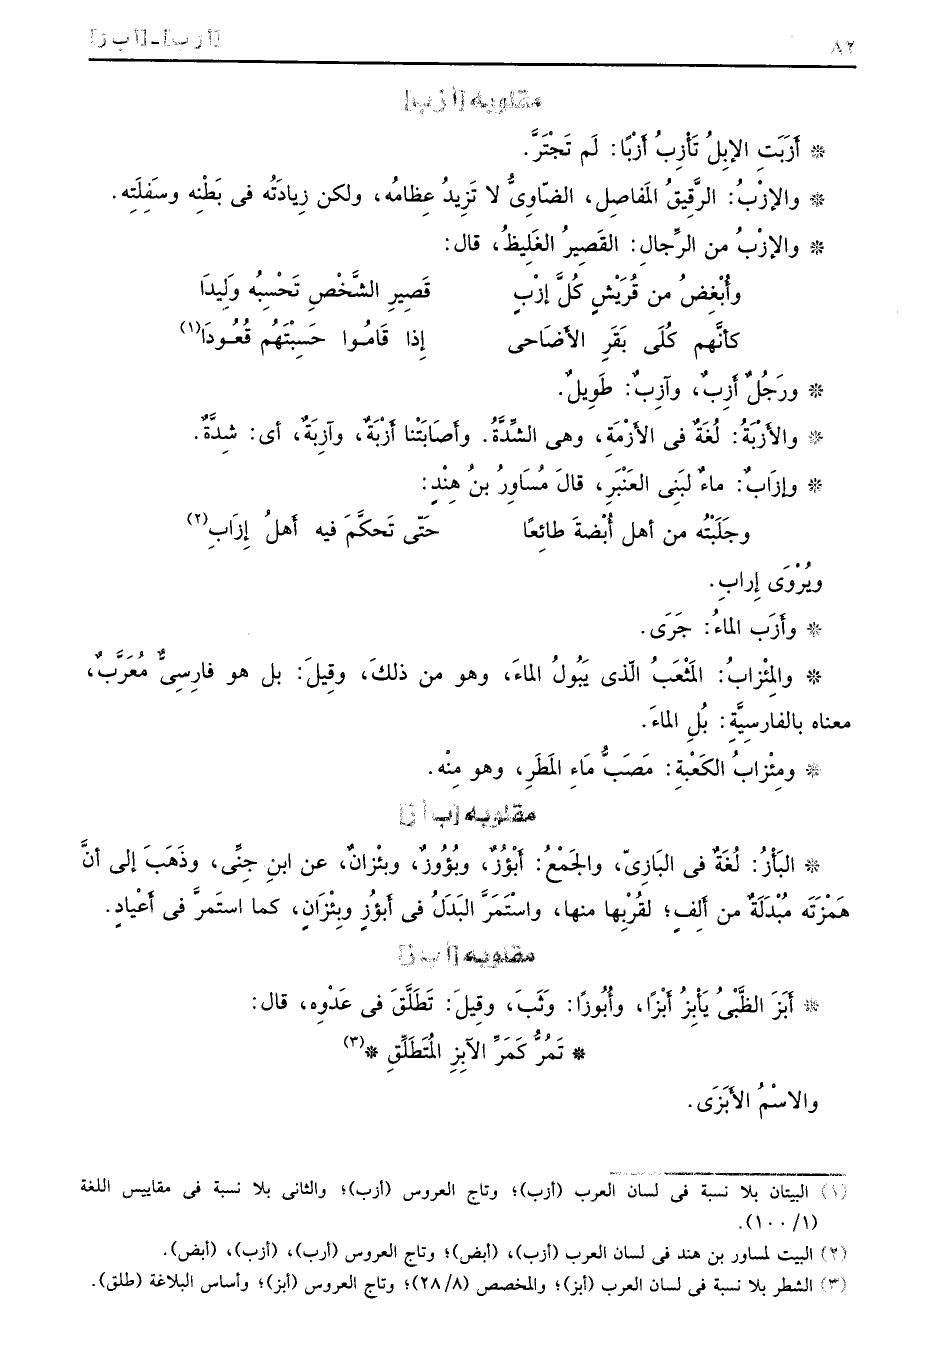 ٨٢
[أ ز ب] ـ [أ ب ز]
مقلوبه [أ ز ب]
* أَزَبَتِ الإبِلُ تَأْزِبُ أَزْبًا: لَم تَجْتَرَّ.
* والإزْبُ: الرَّقيقُ المَفاصِل، الضّاوِىُّ لا تَزِيدُ عِظامُه، ولكن زِيادَتُه فى بَطْنِه وسَفِلَتِه.
* والإزْبُ من الرِّجال: القَصِيرُ الغَلِيظُ، قال:
وأُبْغِضُ من قُرَيْشٍ كُلَّ إزْبٍ قَصِيرِ الشَّخْصِ تَحْسِبُه وَلِيدَا
كأنَّهم كُلَى بَقَرِ الأضَاحى إذا قَامُوا حَسِبْتَهُم قُعُودَا(١)
* ورَجُلٌ أَزِبٌ، وآزِبٌ: طَوِيلٌ.
* والأَزْبَةُ: لُغَةٌ فى الأزْمَةِ، وهى الشِّدَّةُ. وأصَابَتْنا أَزْبَةٌ، وآزِبَةٌ، أى: شِدَّةٌ.
* وإزَابٌ: ماءٌ لبَنِى العَنْبَرِ، قالَ مُسَاوِرُ بنُ هِنْدٍ:
وجَلَبْتُه من أهلِ أُبْضةَ طائِعًا حَتّى تَحكَّمَ فيه أهلُ إِزَابِ(٢)
ويُرْوَى إرابِ.
* وأزَب الماءُ: جَرَى.
* والمِئْزابُ: المَثْعَبُ الَّذى يَبُولُ الماءَ، وهو من ذلكَ، وقِيلَ: بل هو فارِسِىٌّ مُعَرَّبٌ،
معناه بالفارسِيَّةِ: بُلِ الماءَ.
* ومِئْزابُ الكَعْبةِ: مَصَبُّ مَاءِ المَطَرِ، وهو مِنْه.
مقلوبه [ب أ ز]
* البَأْزُ: لُغَةٌ فى البَازِىّ، والجَمْعُ: أَبْؤُزٌ، وبُؤُوزٌ، وبِئْزانٌ، عن ابنِ جِنِّى، وذَهَبَ إلى أنَّ
هَمْزَتَه مُبْدَلَةٌ من أَلِفٍ؛ لقُرْبِها منها، واسْتَمَرَّ البَدَلُ فى أبؤُزٍ وبِئْزَانٍ، كما استَمرَّ فى أعْيادٍ.
مقلوبه [أ ب ز]
* أَبَزَ الظَّبْىُ يَأْبِزُ أَبْزًا، وأُبُوزًا: وَثَبَ، وقِيلَ: تَطَلَّقَ فى عَدْوِه، قال:
* تَمُرُّ كَمَرِّ الآبِزِ المُتَطَلِّقِ *(٣)
والاسْمُ الأَبَزَى.
(١) البيتان بلا نسبة فى لسان العرب (أزب)؛ وتاج العروس (أزب)؛ والثانى بلا نسبة فى مقاييس اللغة
(١/ ١٠٠).
(٢) البيت لمساور بن هند فى لسان العرب (أزب)، (أبض)؛ وتاج العروس (أرب)، (أزب)، (أبض).
(٣) الشطر بلا نسبة فى لسان العرب (أبز)؛ والمخصص (٢٨/٨)؛ وتاج العروس (أبز)؛ وأساس البلاغة (طلق).